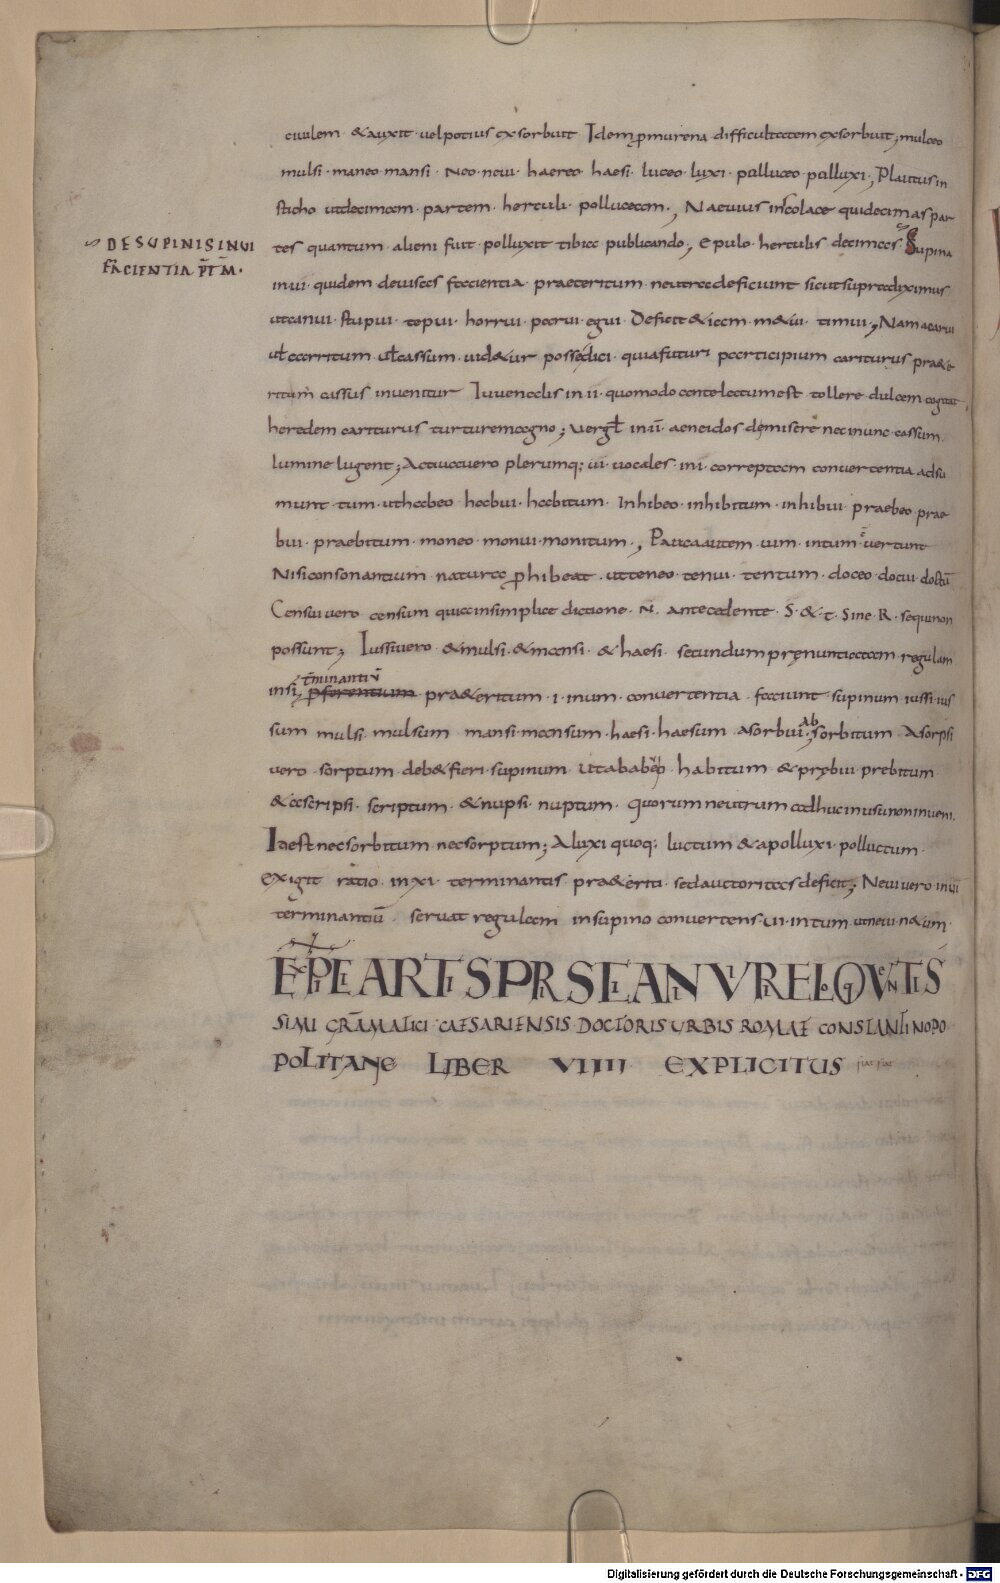 ciuilem · & auxit · uel potius exsorbuit Idem p murena difficultatem exsorbuit; mulceo
mulsi · maneo mansi · Neo · neui · haereo haesi · luceo · luxi · polluceo polluxi; Plautus in
sticho ut decimam · partem · herculi · polluceam; Naeuius in colace qui decimas par
DE SUPINIS IN UI
FACIENTIA PTM·
tes quantum · alieni fuit · polluxit tibi ac publicando; Epulo · herculis decimas · Supina
in ui · quidem deuisas facientia · praeteritum · neutra deficiunt sicut supra diximus
ut canui · stupui · tepui · horrui · parui · egui · Deficit & iam · m&ui · timui; Nam a carui
ul carritum · ul cassum · uid&ur posse dici · quia futuri participium cariturus pra&e
ritum cassus inuenitur Iuuenalis in ii · quomodo ante lectum est tollere dulcem cogitat
heredem cariturus turture magno; Vergl in ii · aeneidos demisere nec nunc · cassum
lumine lugent; Actiua uero plerumq; ui · uocales · in i · correptam conuertentia adsu
munt · tum · ut habeo habui · habitum · Inhibeo · inhibitum · inhibui · praebeo prae
bui · praebitum · moneo · monui · monitum; Pauca autem · uim · in tum · uertunt
Nisi consonantium natura phibeat · ut teneo · tenui · tentum · doceo · docui · doctū
Censui uero censum quia in simplice dictione · N · antecedente · S · & · t · sine · R · sequi non
possunt; Iussi uero · & mulsi · & mansi · & haesi · secundum prenuntiatam regulam
tminantiū
in si, pferentium pra&eritum · i · in um · conuertentia · faciunt · supinum iussi · ius
sum mulsi · mulsum mansi · mansum · haesi · haesum a sorbui · Ab sorbitum A sorpsi
uero · sorptum · deb& fieri · supinum habitum & prebui · prebitum
& a scripsi · scriptum · & nupsi · nuptum · quorum neutrum adhuc in usu non inueni
Id est nec sorbitum nec sorptum; A luxi quoq; luctum & a polluxi · polluctum ·
exigit ratio · in xi · terminantis pra&eriti · sed auctoritas deficit; Neui uero in ui
terminantiū · seruat regulam in supino conuertens · ui · in tum · ut neui n&um ·
SIMI GRAMATICI CAESARIENSIS DOCTORIS URBIS ROMAE CONSTANTINOPO
POLITANE LIBER VIIII EXPLICITUS
Digitalisierung gefördert durch die Deutsche Forschungsgemeinschaft - DFG